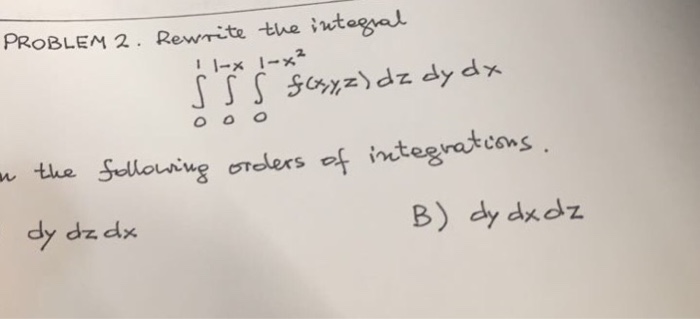 PROBLEM 2. Rewrite the integral
1 1-x 1-x²
∫ ∫ ∫ f(x,y,z) dz dy dx
0 0 0
the following orders of integrations.
dy dz dx B) dy dx dz